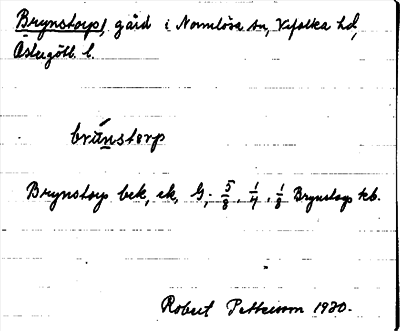 Brynstorp, gård i Normlösa sn, Vifolka hd,
Östergötl. l.
bränstorp
Brynstorp bek, ek, G; 5/8, 1/4, 1/8 Brynstorp kb.
Robert Pettersson 1930.